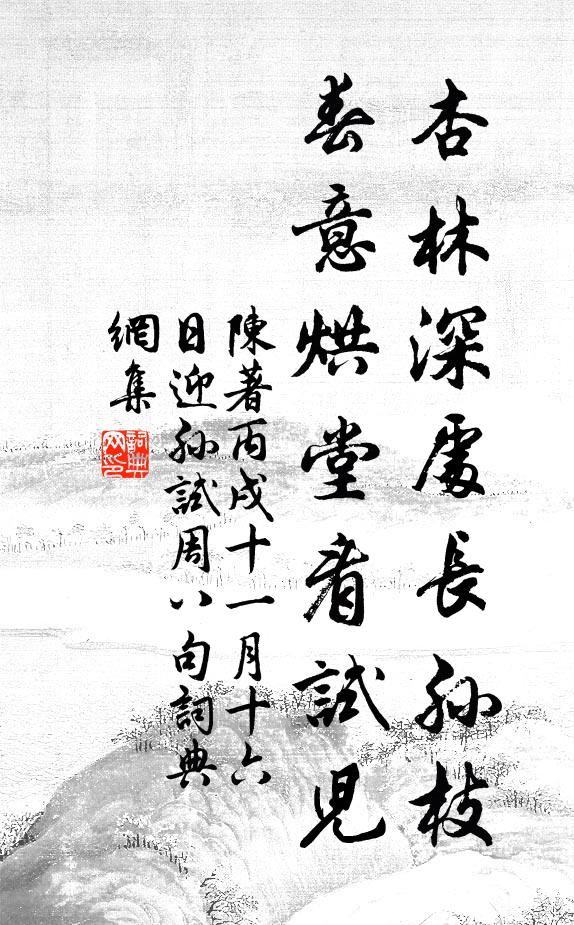 杏林深處長孫枝
春意烘堂看試兒
陳著丙戌十一月十六
日迎孫試周八句詞典
網集
詞典網印